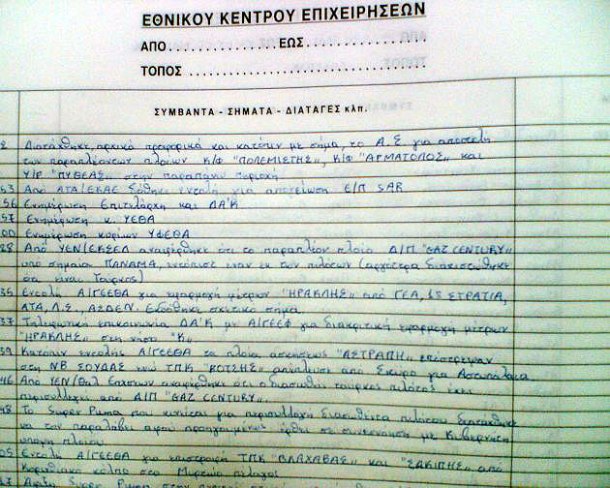 ΕΘΝΙΚΟΥ ΚΕΝΤΡΟΥ ΕΠΙΧΕΙΡΗΣΕΩΝ
ΑΠΟ.............ΕΩΣ..............
ΤΟΠΟΣ ...........................
ΣΥΜΒΑΝΤΑ - ΣΗΜΑΤΑ - ΔΙΑΤΑΓΕΣ κλπ.
Διατάχθηκε, αρχικά προφορικά και κατόπιν με σήμα, το Α.Σ. για αποστολή
των παραπλεόντων πλοίων Κ/Φ "ΠΟΛΕΜΙΣΤΗΣ", Κ/Φ "ΑΡΜΑΤΟΛΟΣ" και
Υ/Β "ΠΥΘΕΑΣ" στην παραπάνω περιοχή
53 Από ΑΤΑ/ΕΚΑΕ δόθηκε εντολή για απογείωση Ε/Π SAR
56 Ενημέρωση Επιτελάρχη και ΔΑ'Κ
57 Ενημέρωση κ. ΥΕΘΑ
00 Ενημέρωση κυρίων ΥΦΕΘΑ
28 Από ΥΕΝ/ΕΚΣΕΔ αναφέρθηκε ότι το παραπλέον πλοίο Δ/Π "GAZ CENTURY"
υπό σημαία ΠΑΝΑΜΑ, εντόπισε έναν εκ των πιλότων (αργότερα διαπιστώθηκε
ότι είναι Τούρκος)
35 Εντολή Α/ΓΕΕΘΑ για εφαρμογή μέτρων "ΗΡΑΚΛΗΣ" από ΓΕΑ, 1Σ ΣΤΡΑΤΙΑ,
ΑΤΑ, Α.Σ., ΑΣΔΕΝ. Εκδόθηκε σχετικό σήμα.
37 Τηλεφωνική επικοινωνία ΔΑ'Κ με Α/ΓΕΕΦ για διακριτική εφαρμογή μέτρων
"ΗΡΑΚΛΗΣ" στη νήσο "Κ"
39 Κατόπιν εντολής Α/ΓΕΕΘΑ τα πλοία ασκήσεως "ΑΣΤΡΑΠΗ" επέστρεψαν
στη ΝΒ ΣΟΥΔΑΣ ενώ ΤΠΚ "ΚΩΤΣΗΣ" απέπλευσε από Σκύρο για Αστυπάλαια
46 Από ΥΕΝ/Θαλ Επιχσεων αναφέρθηκε ότι ο διασωθείς τούρκος πιλότος έχει
περισυλλεγεί από Δ/Π "GAZ CENTURY".
48 Το Super Puma που κινείται για περισυλλογή διασωθέντα πιλότου διατάχθηκε
να τον παραλάβει αφού προηγουμένως έρθει σε συνεννόηση με Κυβερνήτη
πλοίου
05 Εντολή Α/ΓΕΕΘΑ για επιστροφή ΤΠΚ "ΒΛΑΧΑΒΑΣ" και "ΣΑΚΙΠΗΣ" από
Κορινθιακό κόλπο στο Μυρτώο πέλαγος
Super Puma στην